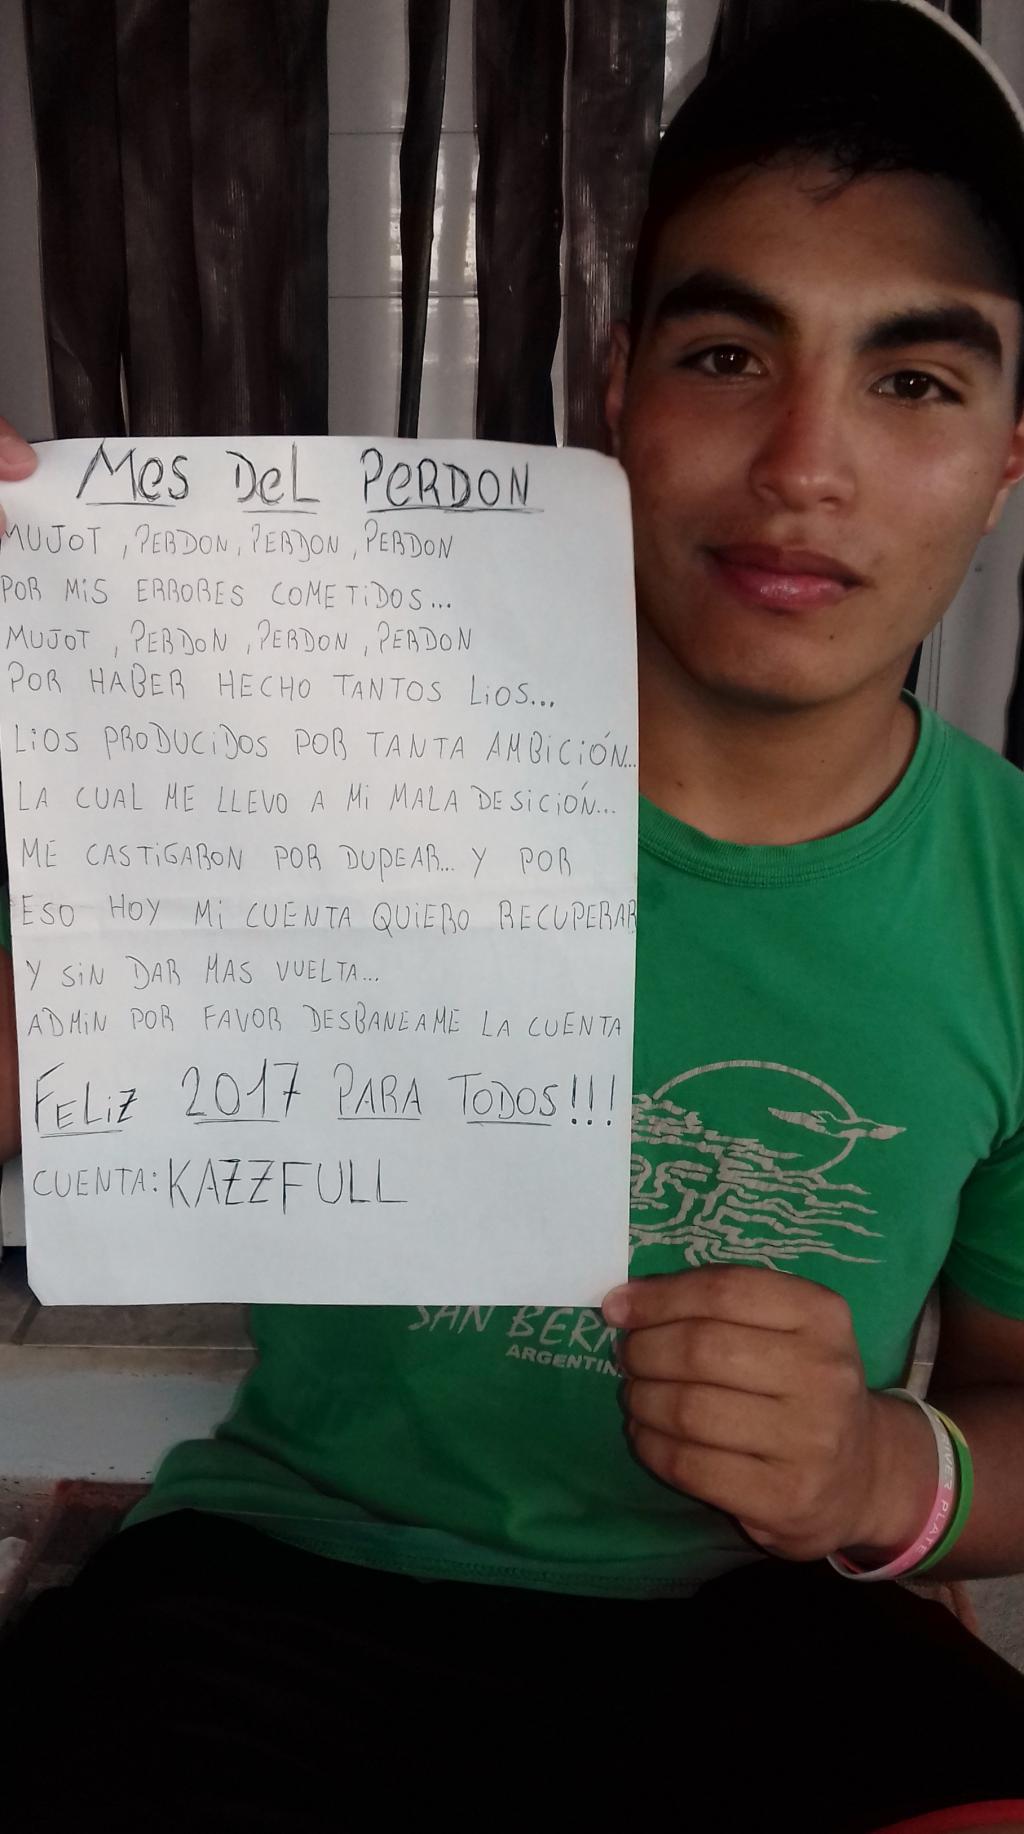 MES DEL PERDON
MUJOT , PERDON, PERDON , PERDON
POR MIS ERRORES COMETIDOS...
MUJOT , PERDON , PERDON, PERDON
POR HABER HECHO TANTOS LIOS...
LIOS PRODUCIDOS POR TANTA AMBICIÓN...
LA CUAL ME LLEVO A MI MALA DESICIÓN...
ME CASTIGARON POR DUPEAR... Y POR
ESO HOY MI CUENTA QUIERO RECUPERAR
Y SIN DAR MAS VUELTA...
ADMIN POR FAVOR DESBANEAME LA CUENTA
FELIZ 2017 PARA TODOS!!!
CUENTA: KAZZFULL
SAN BERN
ARGENTIN
RIVER PLATE